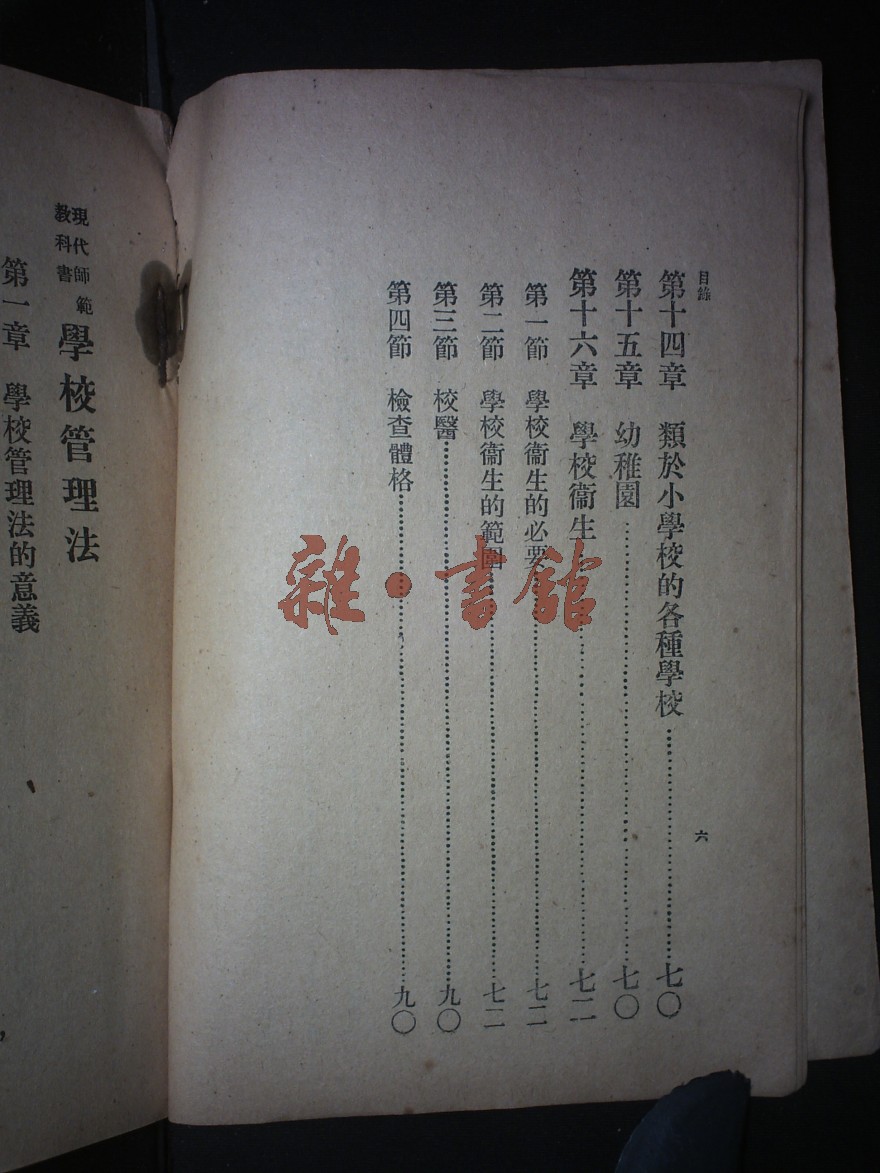 目錄
六
第十四章　類於小學校的各種學校……七〇
第十五章　幼稚園……七〇
第十六章　學校衞生……七二
第一節　學校衞生的必要……七二
第二節　學校衞生的範圍……七二
第三節　校醫……九〇
第四節　檢查體格……九〇
現代師範教科書　學校管理法
第一章　學校管理法的意義
雜·書館